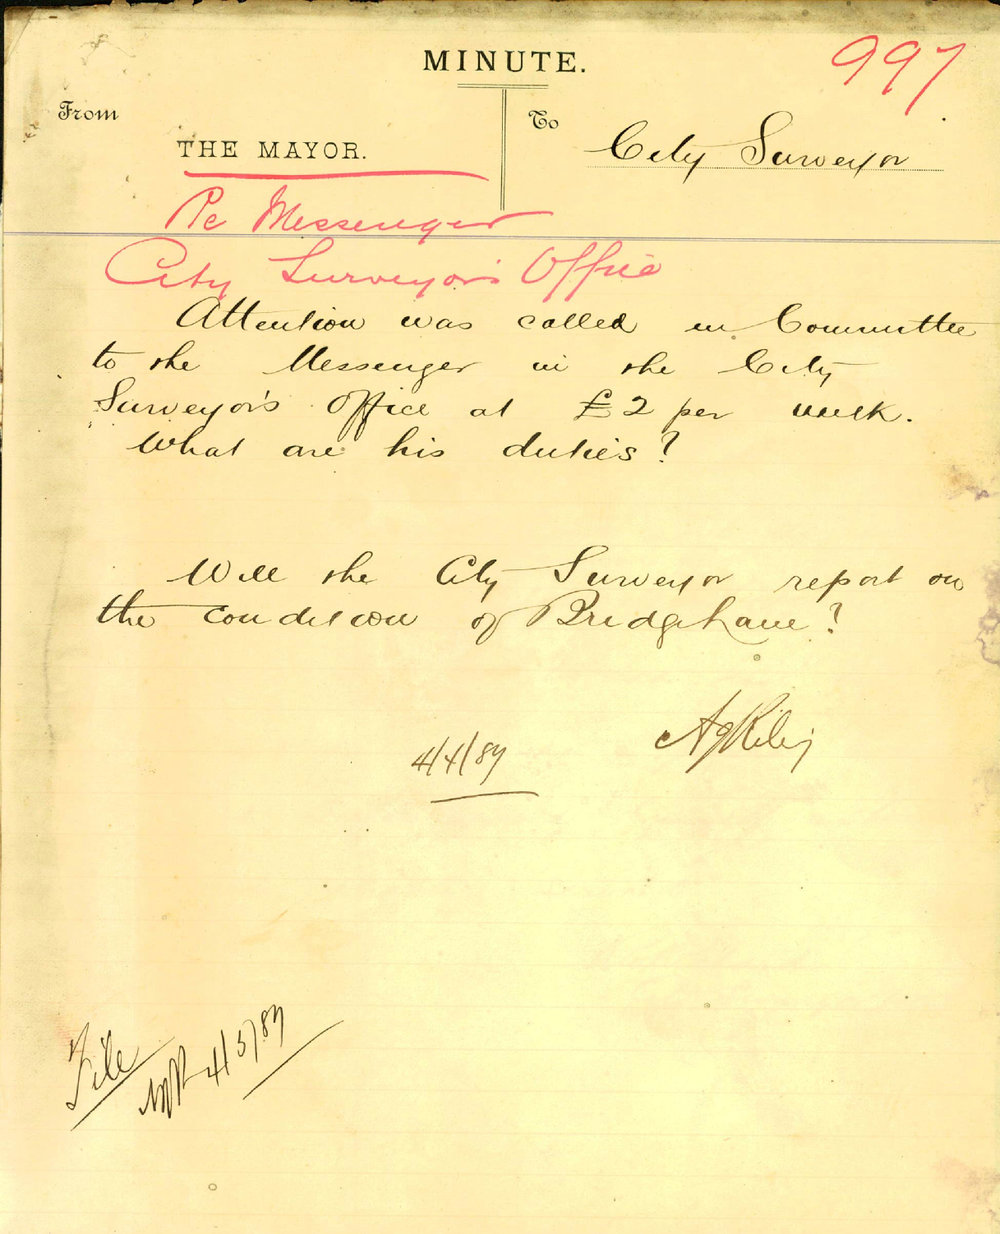 997
MINUTE.
From
THE MAYOR.
To
City Surveyor
Re Messenger
City Surveyor's Office
Attention was called in Committee
to the Messenger in the City
Surveyor's Office at £2 per week.
What are his duties?
Will the City Surveyor report on
the condition of Bridge Lane?
AJRiley
4/4/89
File
4/5/89